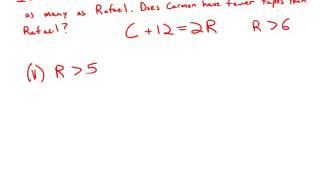 as many as Rafael. Does Carmen have fewer tapes than
Rafael? C + 12 = 2R R > 6
(1) R > 5